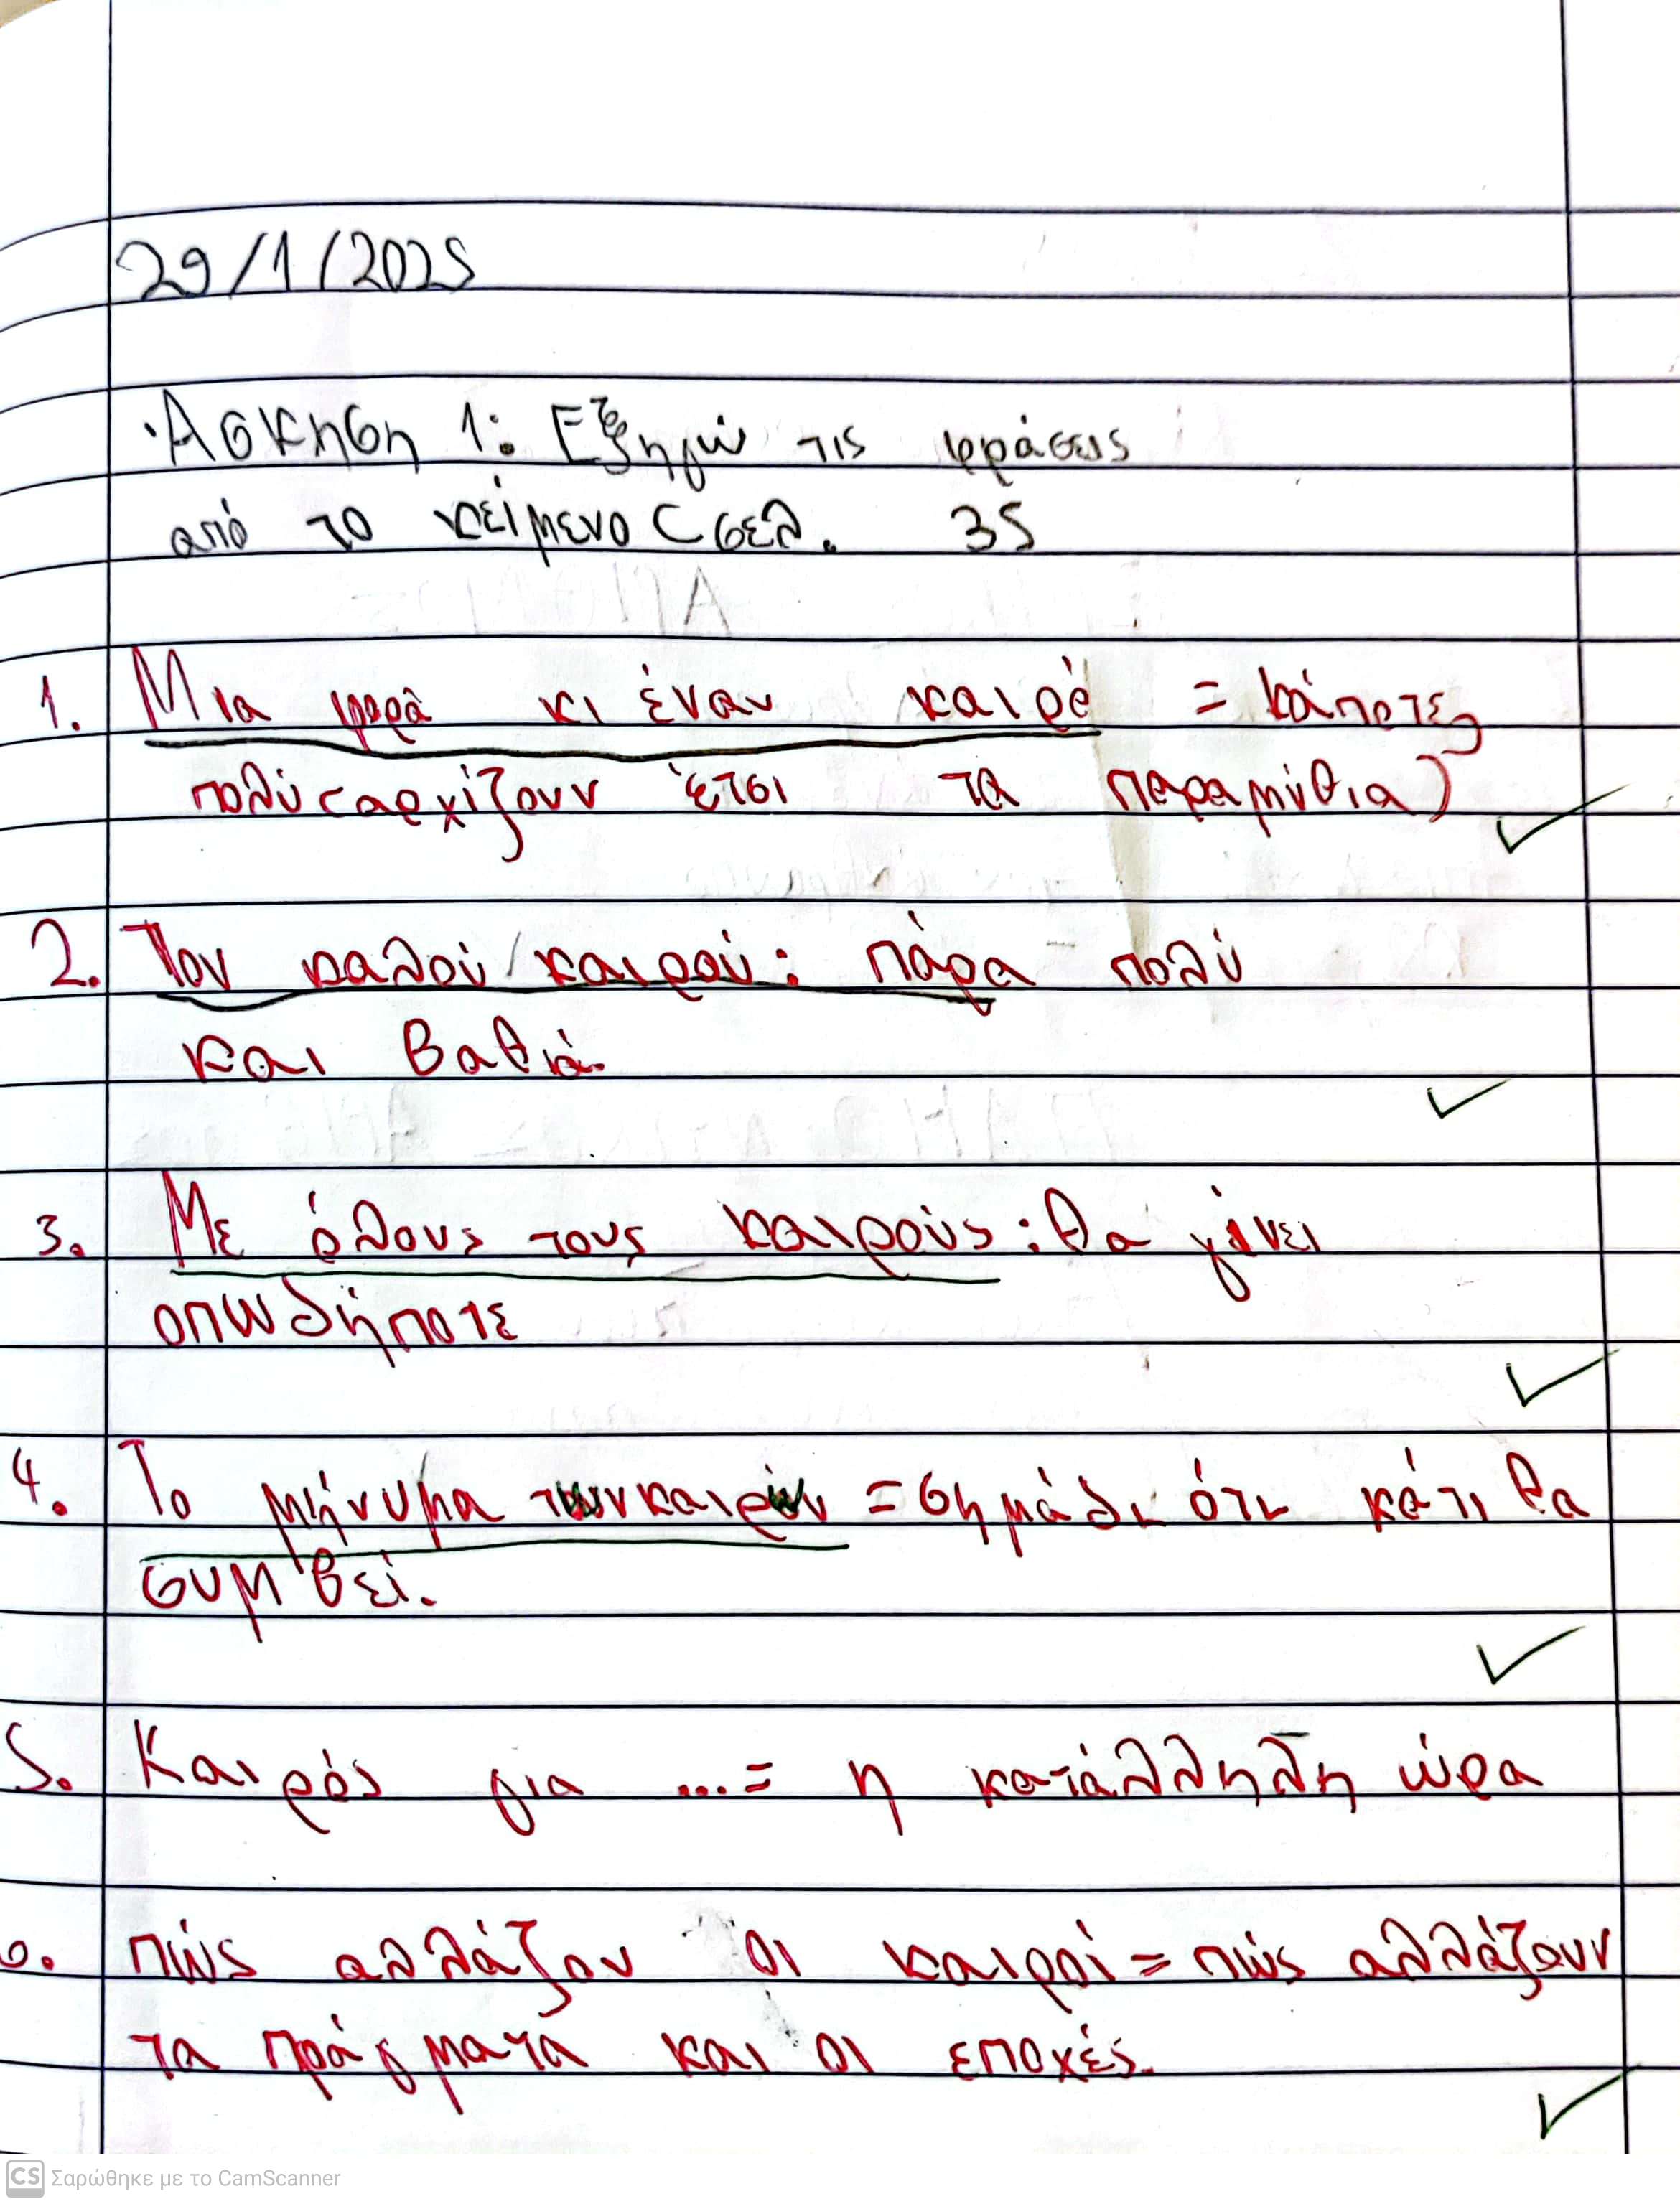 29/1/2025
·Άσκηση 1: Εξηγώ τις φράσεις
από το κείμενο C σελ. 35
1. Μια φορά κι έναν καιρό = κάποτε
πολύ (αρχίζουν έτσι τα παραμύθια)
2. Τον καλού καιρού: πάρα πολύ
και βαθιά.
3. Με όλους τους καιρούς: θα γίνει
οπωδήποτε
4. Το μήνυμα των καιρών = σημάδι ότι κάτι θα
συμβεί.
5. Καιρός για ... = η κατάλληλη ώρα
6. πώς αλλάζουν οι καιροί = πώς αλλάζουν
τα πράγματα και οι εποχές.
CS Σαρώθηκε με το CamScanner